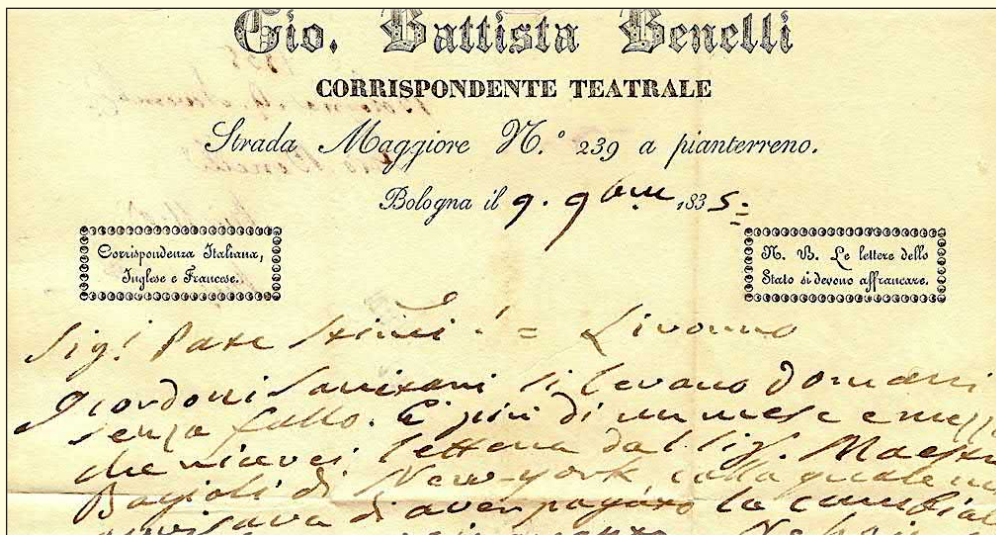 Gio. Battista Benelli
CORRISPONDENTE TEATRALE
Strada Maggiore N.° 239 a pianterreno.
Bologna il 9. 9bre 1835.
Corrispondenza Italiana,
Inglese e Francese.
N. B. Le lettere dello
Stato si devono affrancare.
Livorno
si levano domani
senza fallo. È più di un mese e mezzo
che ricevei lettera dal Sig. Maestro
Bagioli di New-york, colla quale mi
avvisava di aver pagato la cambiale